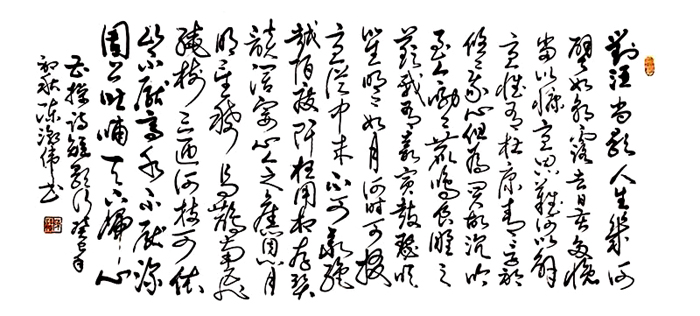 對酒當歌人生幾何
譬如朝露去日苦多慨
當以慷憂思難忘何以解
憂惟有杜康青青子衿
悠悠我心但為君故沉吟
至今呦呦鹿鳴食野之
苹我有嘉賓鼓瑟吹
笙明明如月何時可掇
憂從中來不可斷絕
越陌度阡枉用相存契
談闊宴心念舊恩月
明星稀烏鵲南飛
繞樹三匝何枝可依
山不厭高水不厭深
周公吐哺天下歸心
曹操詩短歌行癸巳年
初秋陳偉書